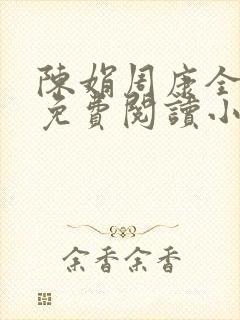 陳娟周康全
免費閱讀小
余香余香